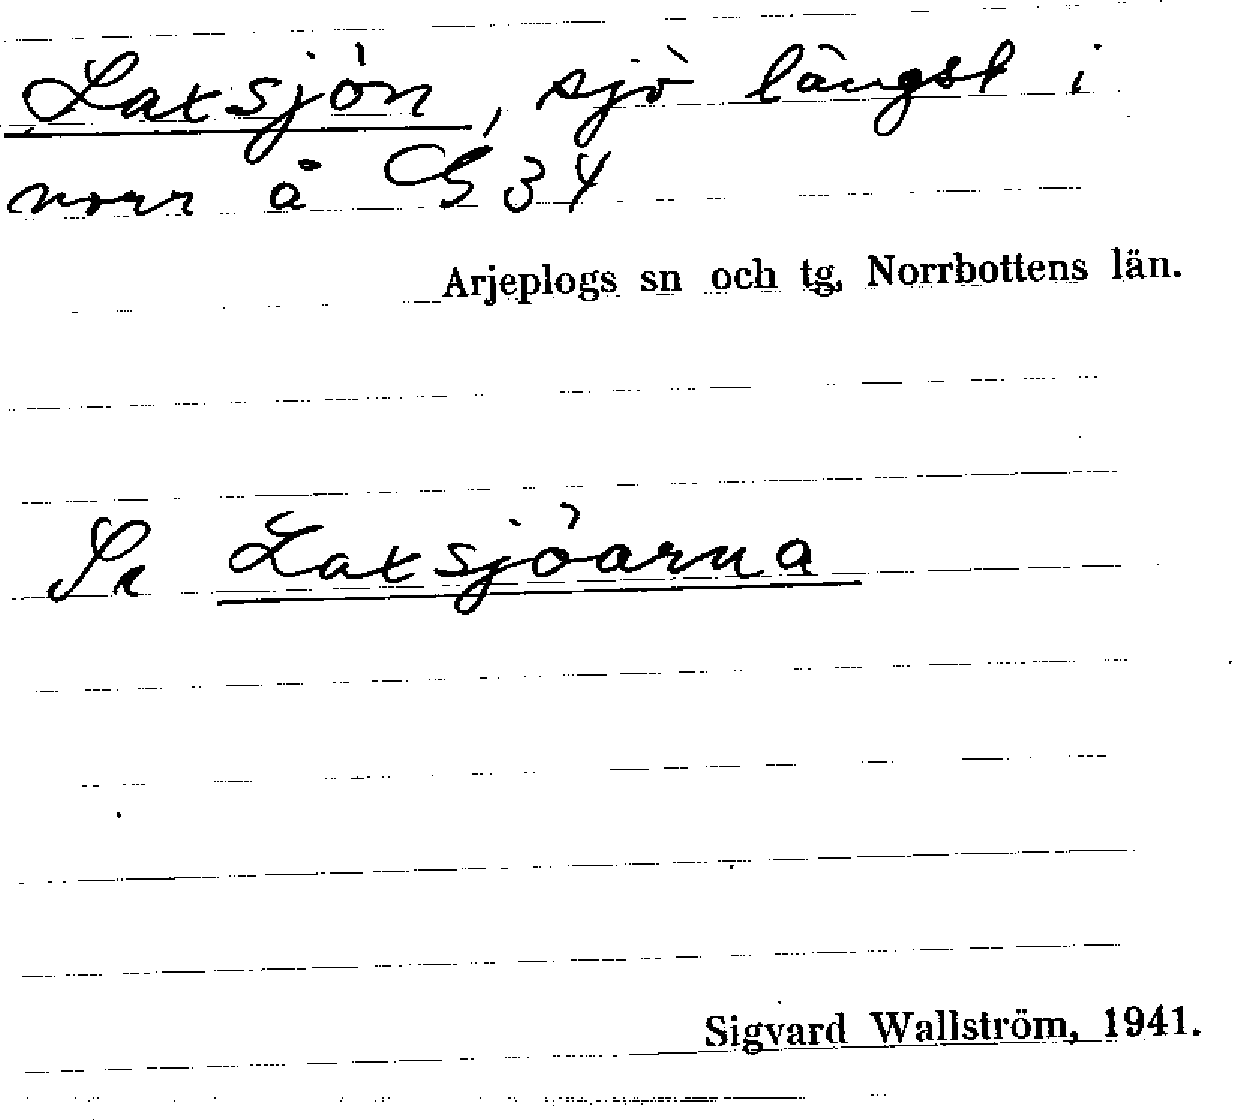 Laxsjön, sjö längst i
norr å G 34
Arjeplogs sn och tg, Norrbottens län.
Se Laxsjöarna
Sigvard Wallström, 1941.